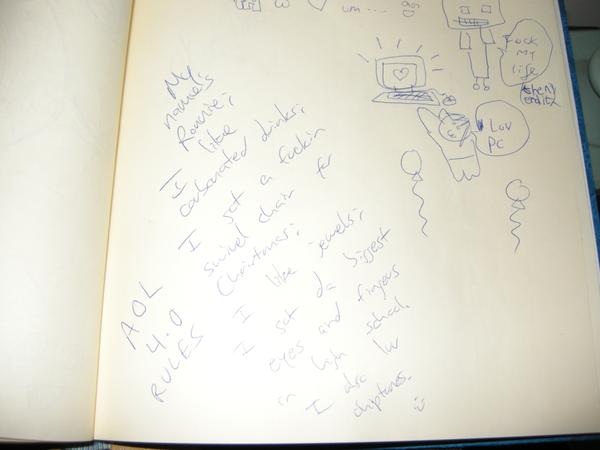 um...
Fuck
my
life
Luv
PC
My
name's
Ronnie;
I like
carbonated drinks;
I got a fuckin
swivel chair for
Christmas;
I like jewels;
I got da biggest
eyes and fingers
in high school.
I also luv
chiptunes.
AOL
4.0
RULES